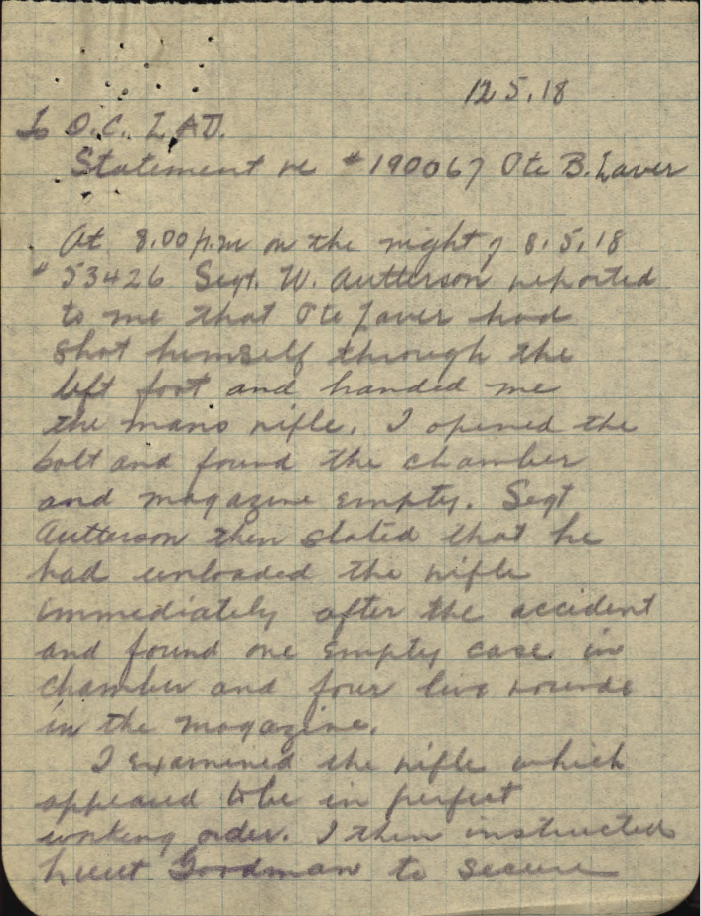 12.5.18
To O.C. L.A.D.
Statement re #190067 Pte B. Laver
At 8.00 p.m on the night of 8.5.18
#53426 Segt. W. Autterson reported
to me that Pte Laver had
shot himself through the
left foot and handed me
the mans rifle. I opened the
bolt and found the chamber
and magazine empty. Segt
Autterson then stated that he
had unloaded the rifle
immediately after the accident
and found one empty case in
chamber and four live rounds
in the magazine.
I examined the rifle which
appeared to be in perfect
working order. I then instructed
Lieut Goodman to secure